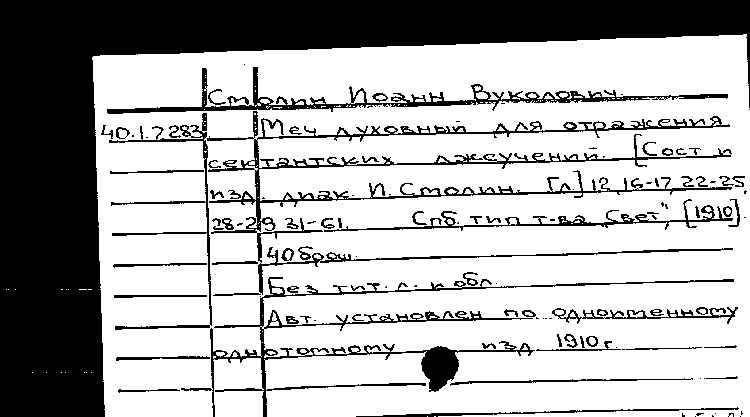 Столин, Иоанн Вуколович.
40.1.7283 Меч духовный для отражения
сектантских лжеучений. [Сост и
изд. диак. И. Столин. [Л] 12, 16-17, 22-25,
28-29, 31-61. Спб, тип т-ва „Свет", [1910].
40 брош.
Без тит. л. и обл.
Авт. установлен по одноименному
однотомному изд 1910 г.